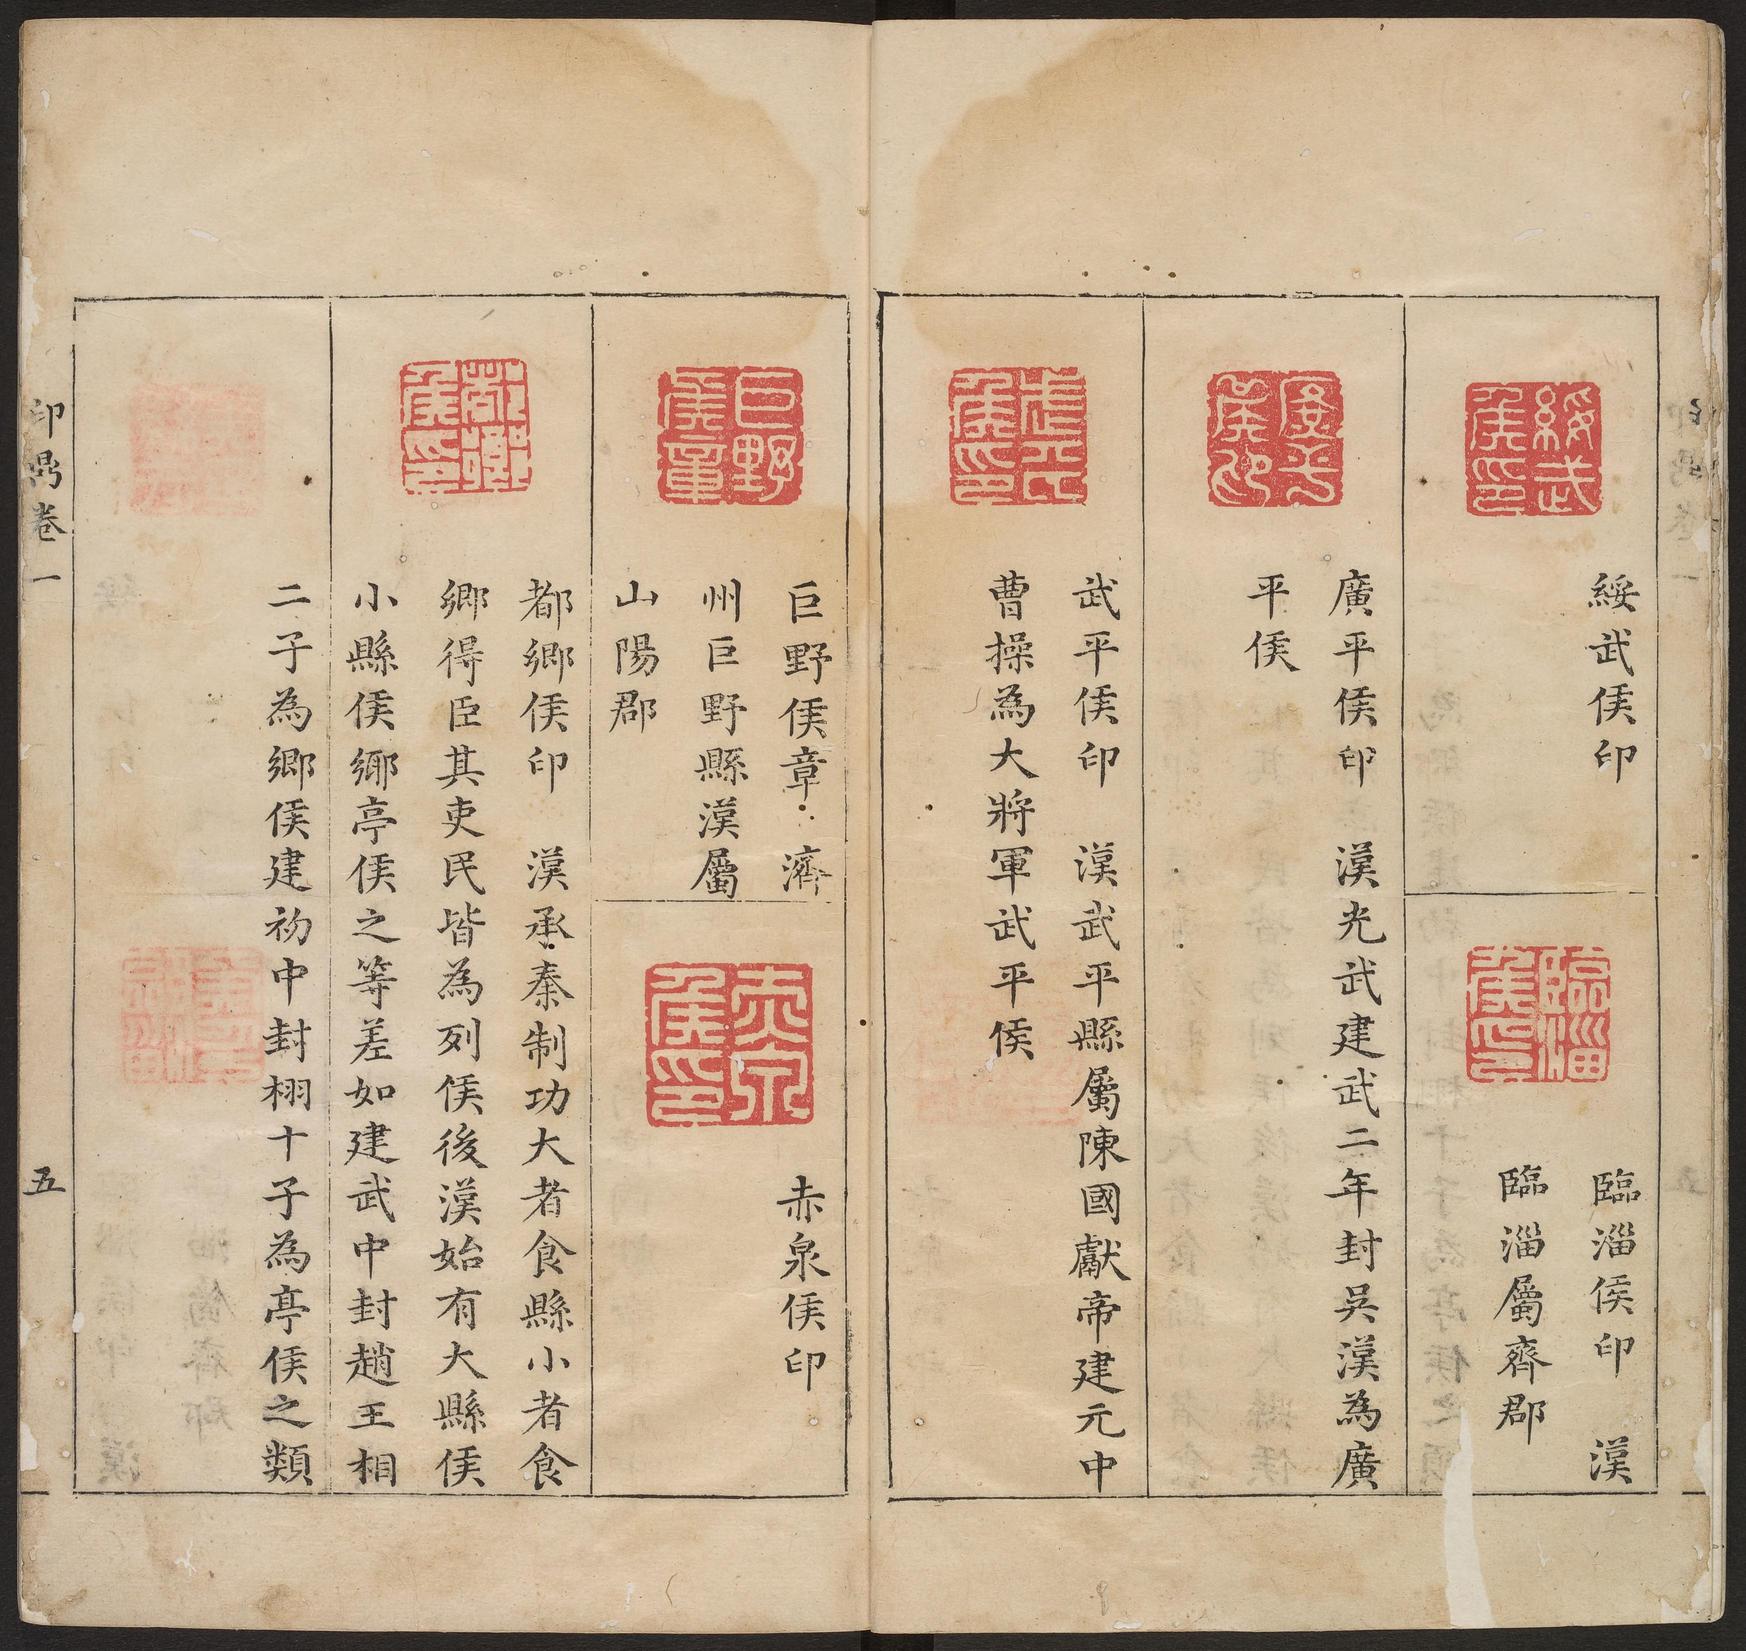 綏武侯印
綏武侯印
臨淄侯印
臨淄侯印　漢
臨淄屬齊郡
廣平侯印
廣平侯印　漢光武建武二年封吳漢為廣
平侯
武平侯印
武平侯印　漢武平縣屬陳國獻帝建元中
曹操為大將軍武平侯
巨野侯章
巨野侯章　濟
州巨野縣漢屬
山陽郡
赤泉侯印
赤泉侯印
都鄉侯印
都鄉侯印　漢承秦制功大者食縣小者食
鄉得臣其吏民皆為列侯後漢始有大縣侯
小縣侯鄉亭侯之等差如建武中封趙王相
二子為鄉侯建初中封栩十子為亭侯之類
印卷一
五